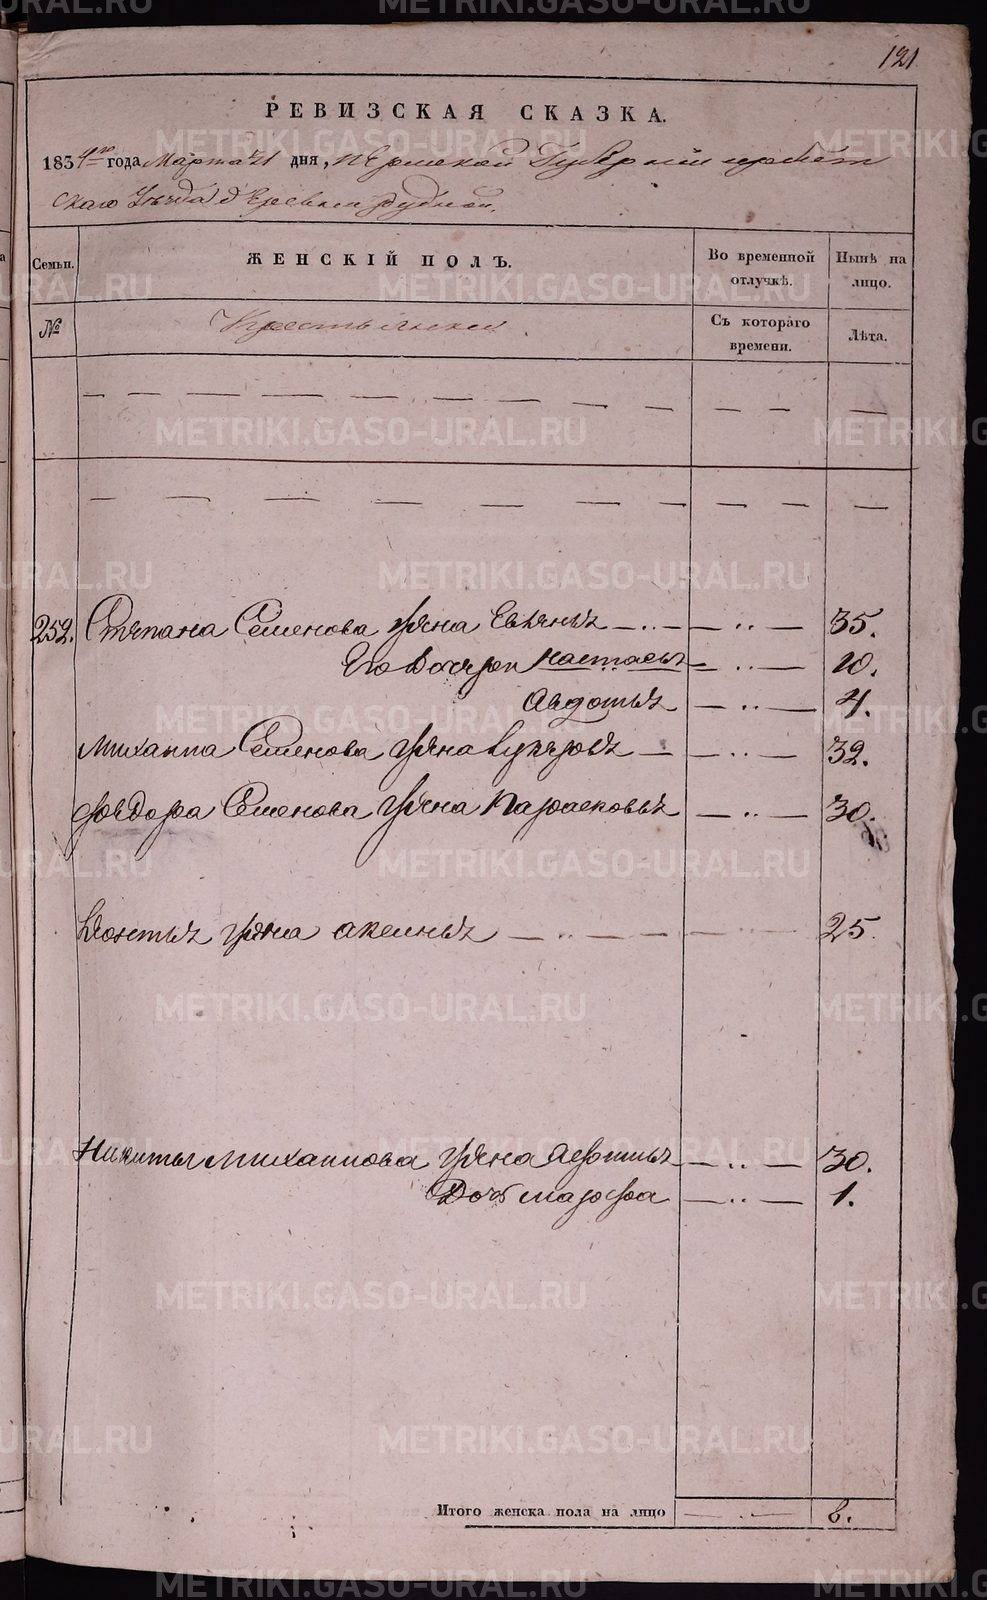 121
РЕВИЗСКАЯ СКАЗКА.
1834го года Марта 21 дня, Пермской Губернии Ирбит
скаго Уезда деревни Рудной.
Семьи. ЖЕНСКІЙ ПОЛЪ. Во временной отлучкѣ. Нынѣ на лицо.
№ Крестьянки. Съ котораго времени. Лѣта.
252. Степана Семенова жена 35.
Его дочери Настасья 10.
Авдотья 4.
Михаила Семенова жена 32.
Федора Семенова жена Парасковья 30.
Леонтья жена Аксинья 25.
Никиты Михаилова жена 30.
Дочь Марфа 1.
Итого женска пола на лицо 8.
METRIKI.GASO-URAL.RU